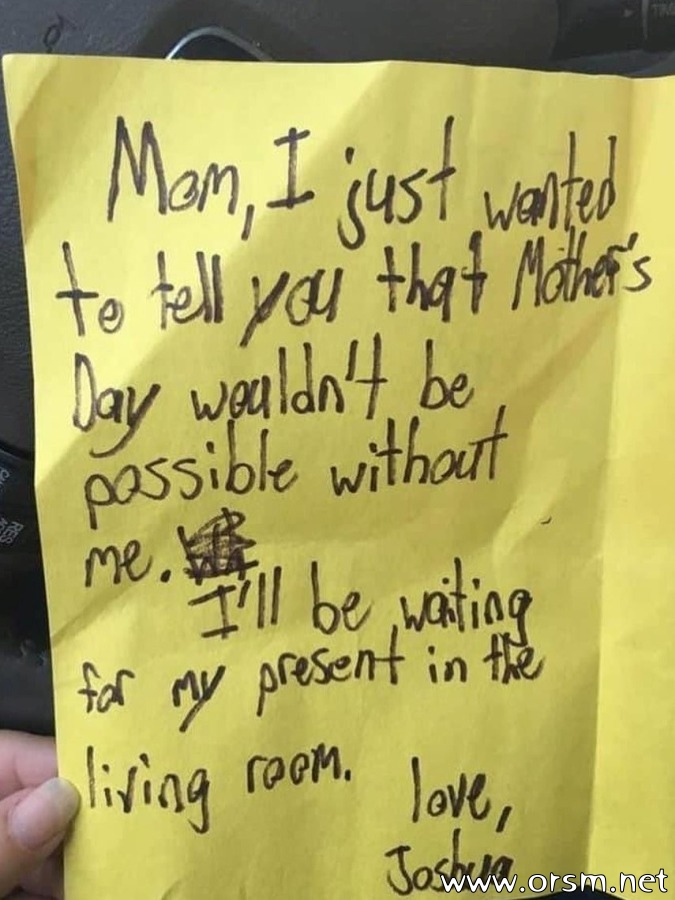 Mom, I just wanted
to tell you that Mother's
Day wouldn't be
possible without
me.
I'll be waiting
for my present in the
living room.
love,
Joshua
www.orsm.net